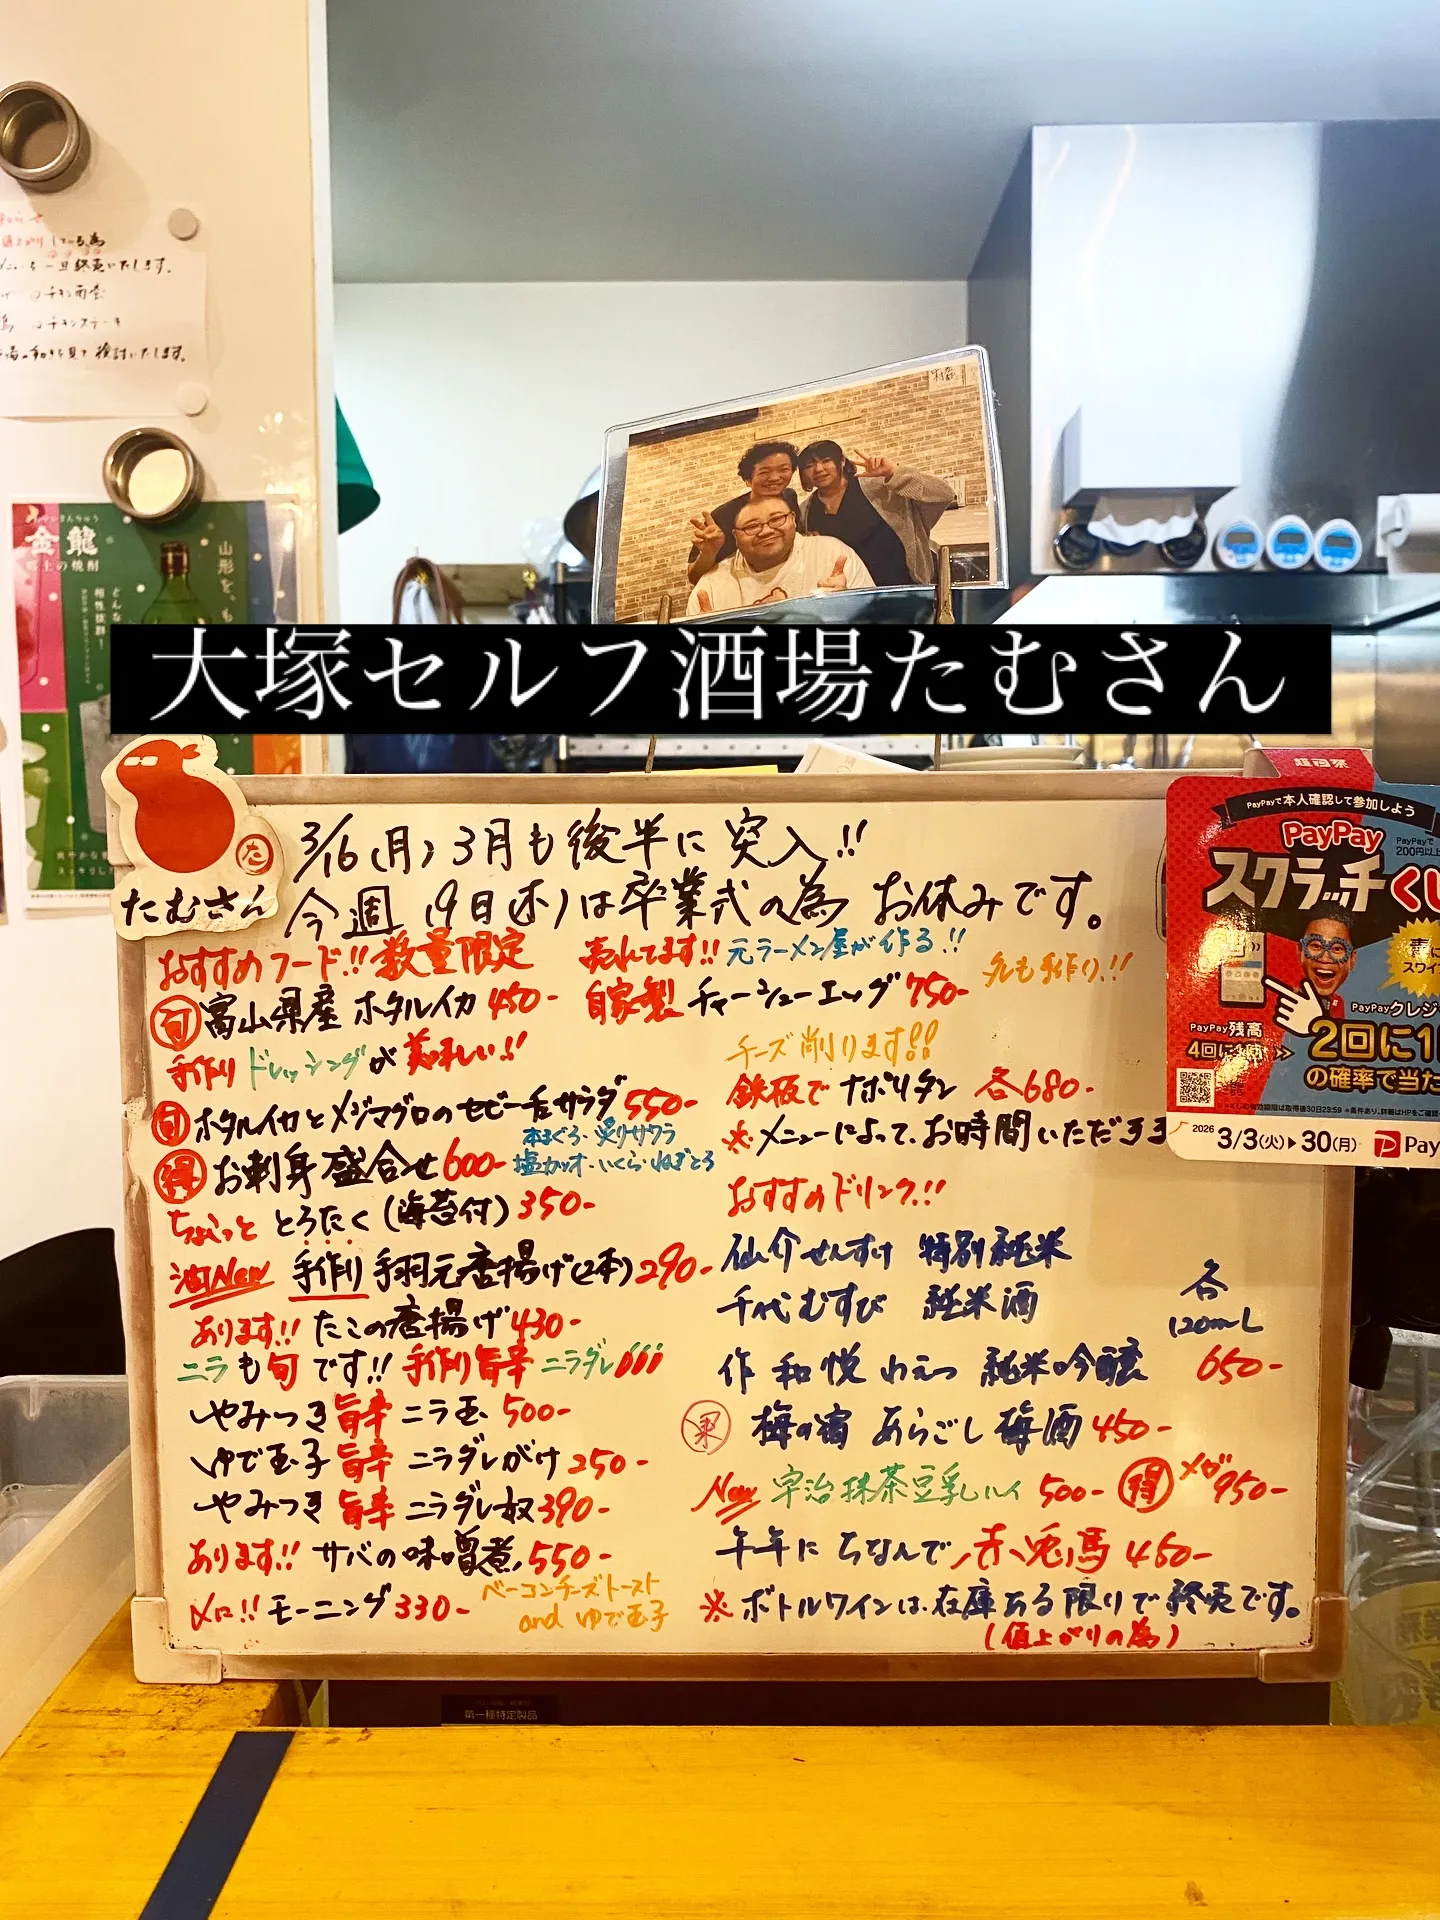 値上がりしている為
メニューを一旦終売いたします。
チキン南蛮
チキンステーキ
検討いたします。
金龍
郷土の焼酎
山形を、も
どんな
相性抜群！
大塚セルフ酒場たむさん
たむさん
3/16(月)3月も後半に突入!!
今週19日(木)は卒業式の為お休みです。
おすすめフード!!数量限定
旬 富山県産 ホタルイカ 450-
手作りドレッシングが美味しい!!
旬 ホタルイカとメジマグロのセビーチェサラダ 550-
得 お刺身盛合せ 600-
本まぐろ・炙りサワラ
塩カツオ・いくら・ねぎとろ
ちょこっと とろたく(海苔付) 350-
油New 手作り 手羽元唐揚げ(2本) 290-
あります!! たこの唐揚げ 430-
ニラも旬です!! 手作り旨辛ニラダレ
やみつき旨辛ニラ玉 500-
ゆで玉子旨辛ニラダレがけ 250-
やみつき旨辛ニラダレ奴 390-
あります!! サバの味噌煮 550-
〆に!! モーニング 330-
ベーコンチーズトースト
and ゆで玉子
売れてます!! 元ラーメン屋が作る!!
自家製チャーシューエッグ 750-
タレも手作り!!
チーズ削ります!!
鉄板でナポリタン 各680-
※メニューによって、お時間いただきます
おすすめドリンク!!
仙介 せんすけ 特別純米
千代むすび 純米酒
作 和悦 わえつ 純米吟醸
各
120mL
650-
果 梅の宿 あらごし梅酒 450-
New 宇治抹茶豆乳ハイ 500- 得 メガ 950-
午年にちなんで、赤兎馬 450-
※ボトルワインは、在庫ある限りで終売です。
(値上がりの為)
超PayPay祭
PayPayで本人確認して参加しよう
PayPay
PayPayで
200円以上
スクラッチくじ
PayPay残高
4回に1回
PayPayクレジ
2回に1
の確率で当た
2026 3/3(火)▶30(月)
Pay
第一種特定製品